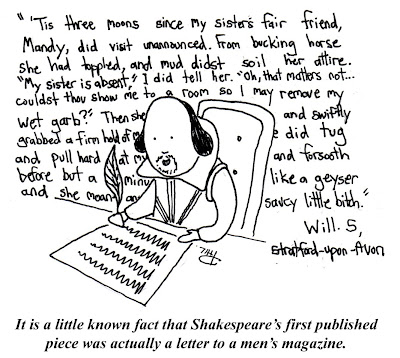 "'Tis three moons since my sister's fair friend,
Mandy, did visit unannounced. From bucking horse
she had toppled, and mud didst soil her attire.
"My sister is absent," I did tell her. "Oh, that matters not...
couldst thou show me to a room so I may remove my
wet garb?" Then she and swiftly
grabbed a firm hold of m did tug
and pull hard at my and forsooth
before but a minu like a geyser
and she moan an saucy little bitch."
Will. S,
Stratford-upon-Avon
It is a little known fact that Shakespeare's first published
piece was actually a letter to a men's magazine.